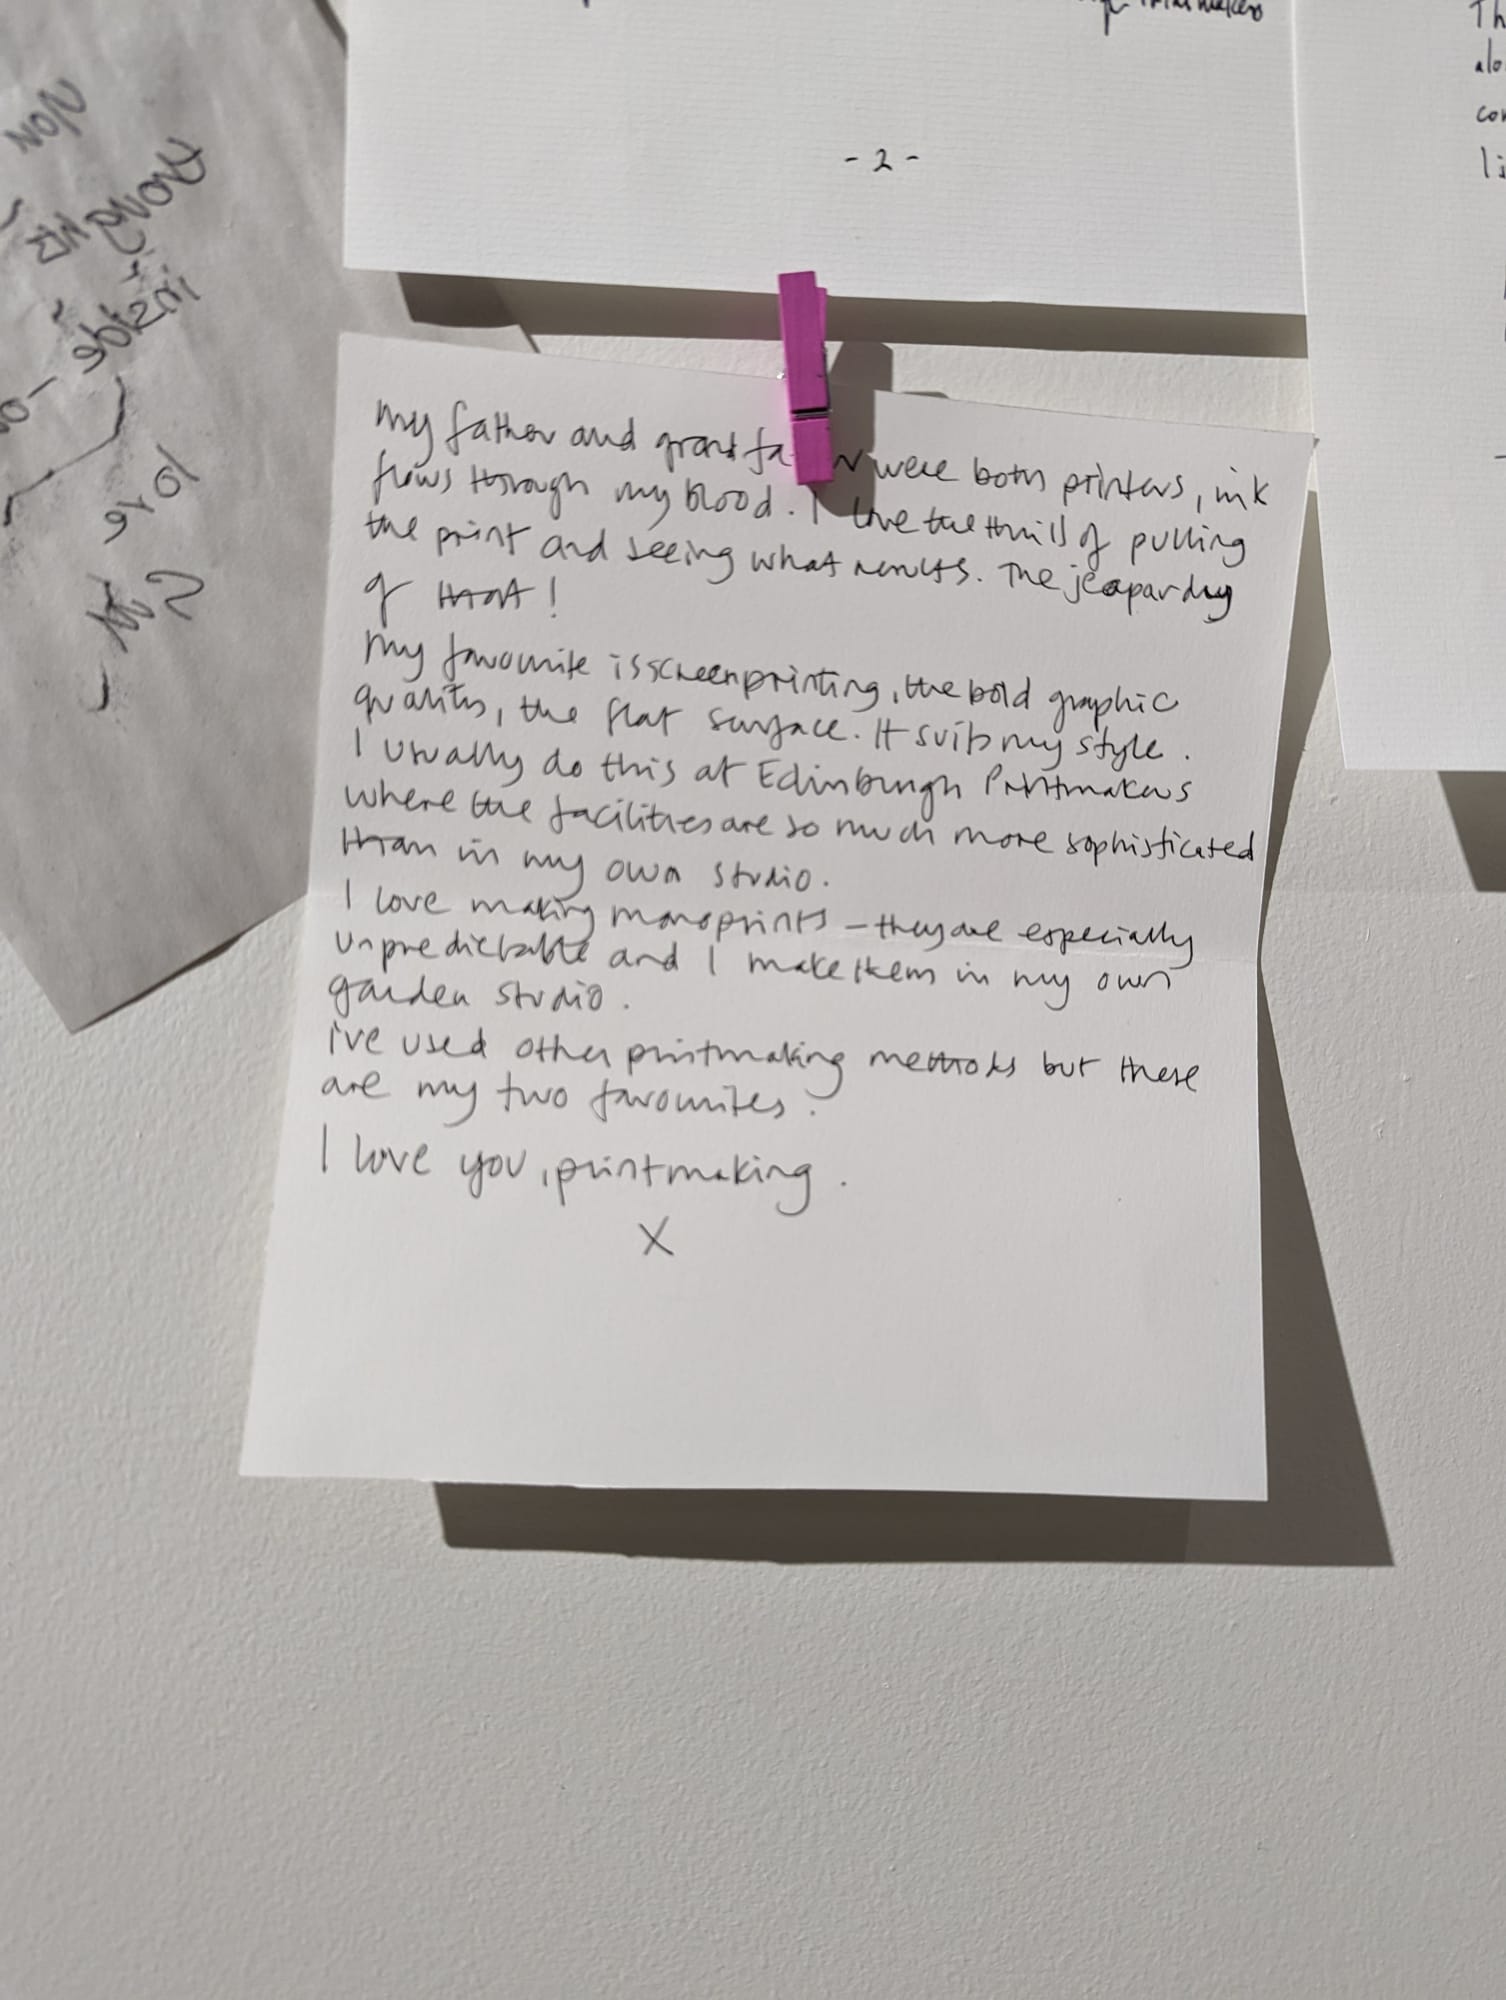 - 2 -
my father and grandfa r were both printers, ink
flows through my blood. I love the thrill of pulling
the print and seeing what results. The jeapardy
of that!
my favourite is screenprinting, the bold graphic
qualities, the flat surface. It suits my style.
I usually do this at Edinburgh Printmakers
where the facilities are so much more sophisticated
than in my own studio.
I love making monoprints – they are especially
unpredictable and I make them in my own
garden studio.
i've used other printmaking methods but these
are my two favourites.
I love you, printmaking.
X
inside